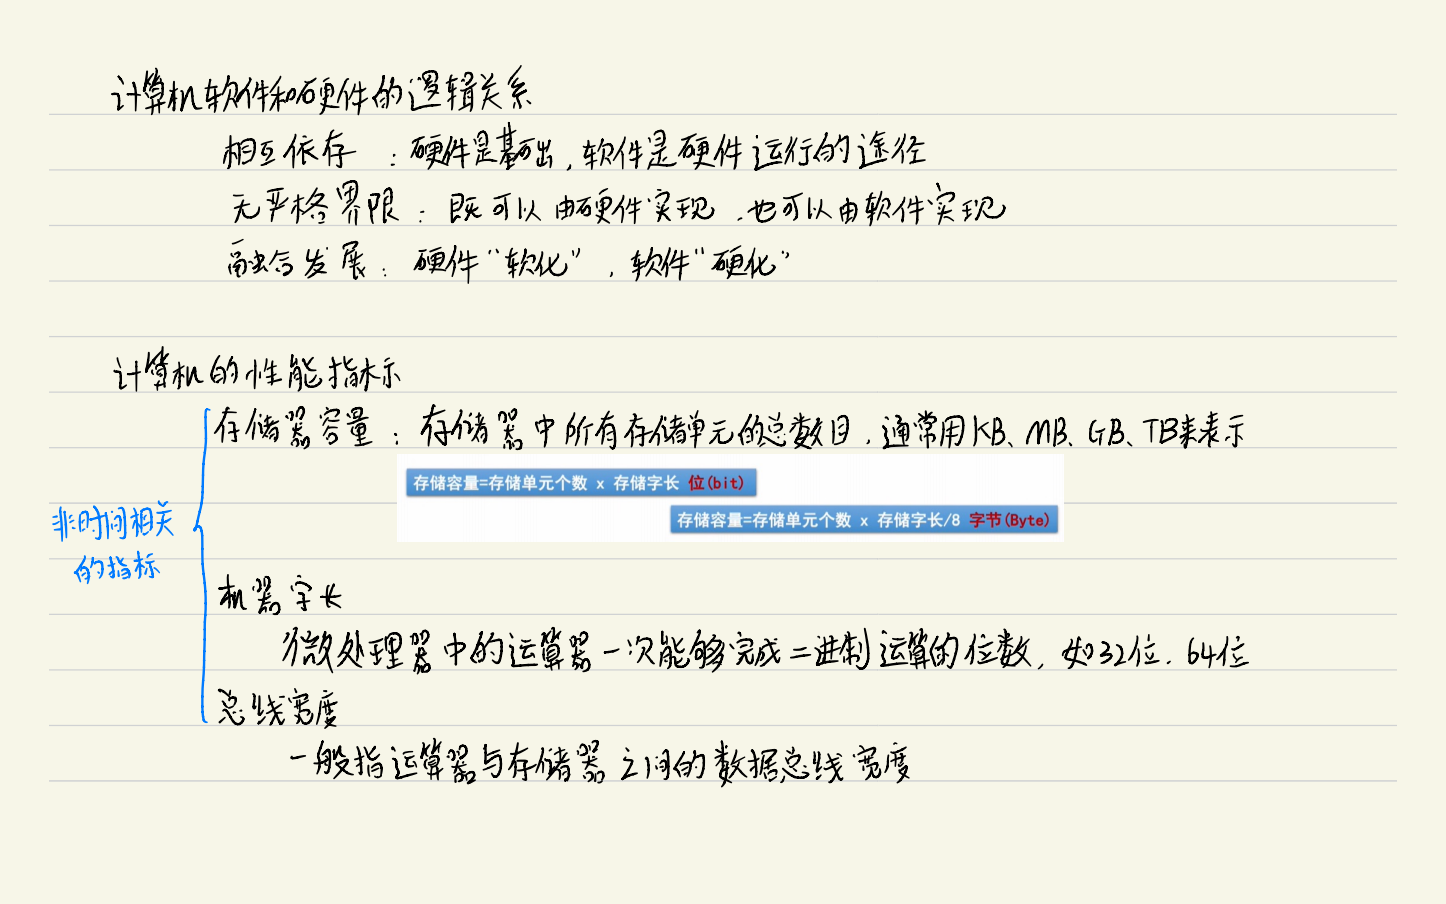 计算机软件和硬件的逻辑关系
相互依存：硬件是基础，软件是硬件运行的途径
无严格界限：既可以由硬件实现，也可以由软件实现
融合发展：硬件“软化”，软件“硬化”
计算机的性能指标
存储器容量：存储器中所有存储单元的总数目，通常用KB、MB、GB、TB来表示
存储容量=存储单元个数 x 存储字长 位(bit)
存储容量=存储单元个数 x 存储字长/8 字节(Byte)
非时间相关
的指标
机器字长
微处理器中的运算器一次能够完成二进制运算的位数，如32位，64位
总线宽度
一般指运算器与存储器之间的数据总线宽度